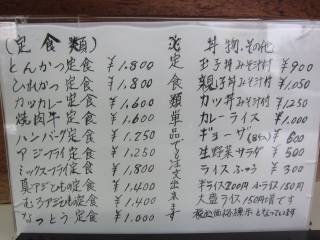 (定食類)
とんかつ定食 ¥1.800
ひれかつ定食 ¥1.800
カツカレー定食 ¥1.600
焼肉牛定食 ¥1.600
ハンバーグ定食 ¥1.250
アジフライ定食 ¥1.250
ミックスフライ定食 ¥1,800
真アジたたき定食 ¥1.400
むろアジたたき定食 ¥1.400
なっとう定食 ¥1.000
定食類単品でも注文出来ます
丼物.その他
玉子丼みそ汁付 ¥900
親子丼みそ汁付 ¥1.050
カツ丼みそ汁付 ¥1,250
カレーライス ¥1.000
ギョーザ ¥600
生野菜サラダ ¥500
ライス ¥300
半ライス200円 小ライス150円
大盛ライス150円増です
税込価格標示となっています